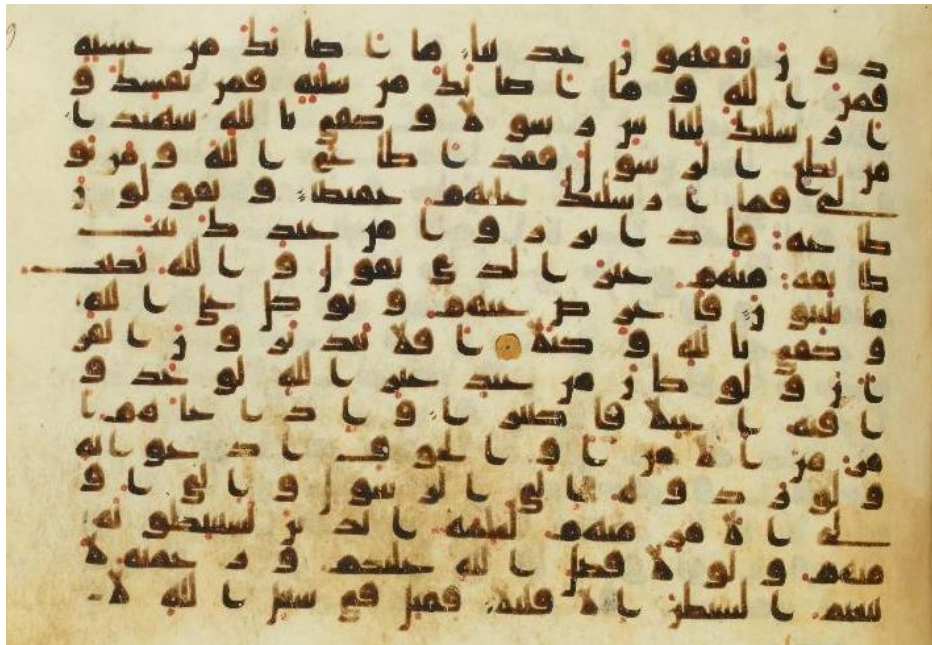 دون يفقهون حديثا ما اصابك من حسنة
فمن الله وما اصابك من سيئة فمن نفسك و
ارسلنك للناس رسولا وكفى بالله شهيدا
من يطع الرسول فقد اطاع الله ومن تو
لى فما ارسلنك عليهم حفيظا ويقولون
طاعة فاذا برزوا من عندك بيت
طائفة منهم غير الذي تقول والله يكتب
ما يبيتون فاعرض عنهم وتوكل على الله
وكفى بالله وكيلا افلا يتدبرون القر
ان ولو كان من عند غير الله لوجدو
ا فيه اختلفا كثيرا واذا جاهم ا
مر من الامن او الخوف اذاعوا به
ولو ردوه الى الرسول والى او
لى الامر منهم لعلمه الذين يستنبطونه
منهم ولولا فضل الله عليكم ورحمته لا
تبعتم الشيطن الا قليلا فقتل في سبيل الله لا